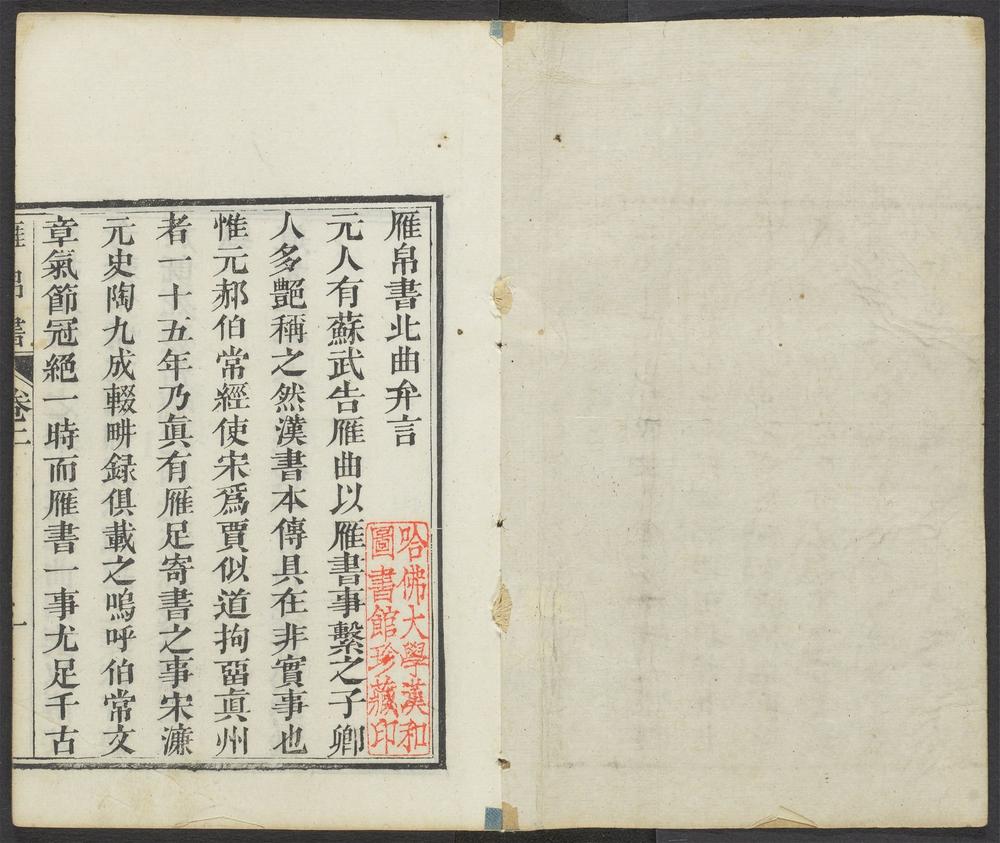 雁帛書北曲弁言
元人有蘇武告雁曲以雁書事繫之子卿
人多艷稱之然漢書本傳具在非實事也
惟元郝伯常經使宋爲賈似道拘畱眞州
者一十五年乃眞有雁足寄書之事宋濂
元史陶九成輟畊録俱載之嗚呼伯常文
章氣節冠絕一時而雁書一事尤足千古
雁帛書 卷二 一
哈佛大學漢和
圖書館珍藏印